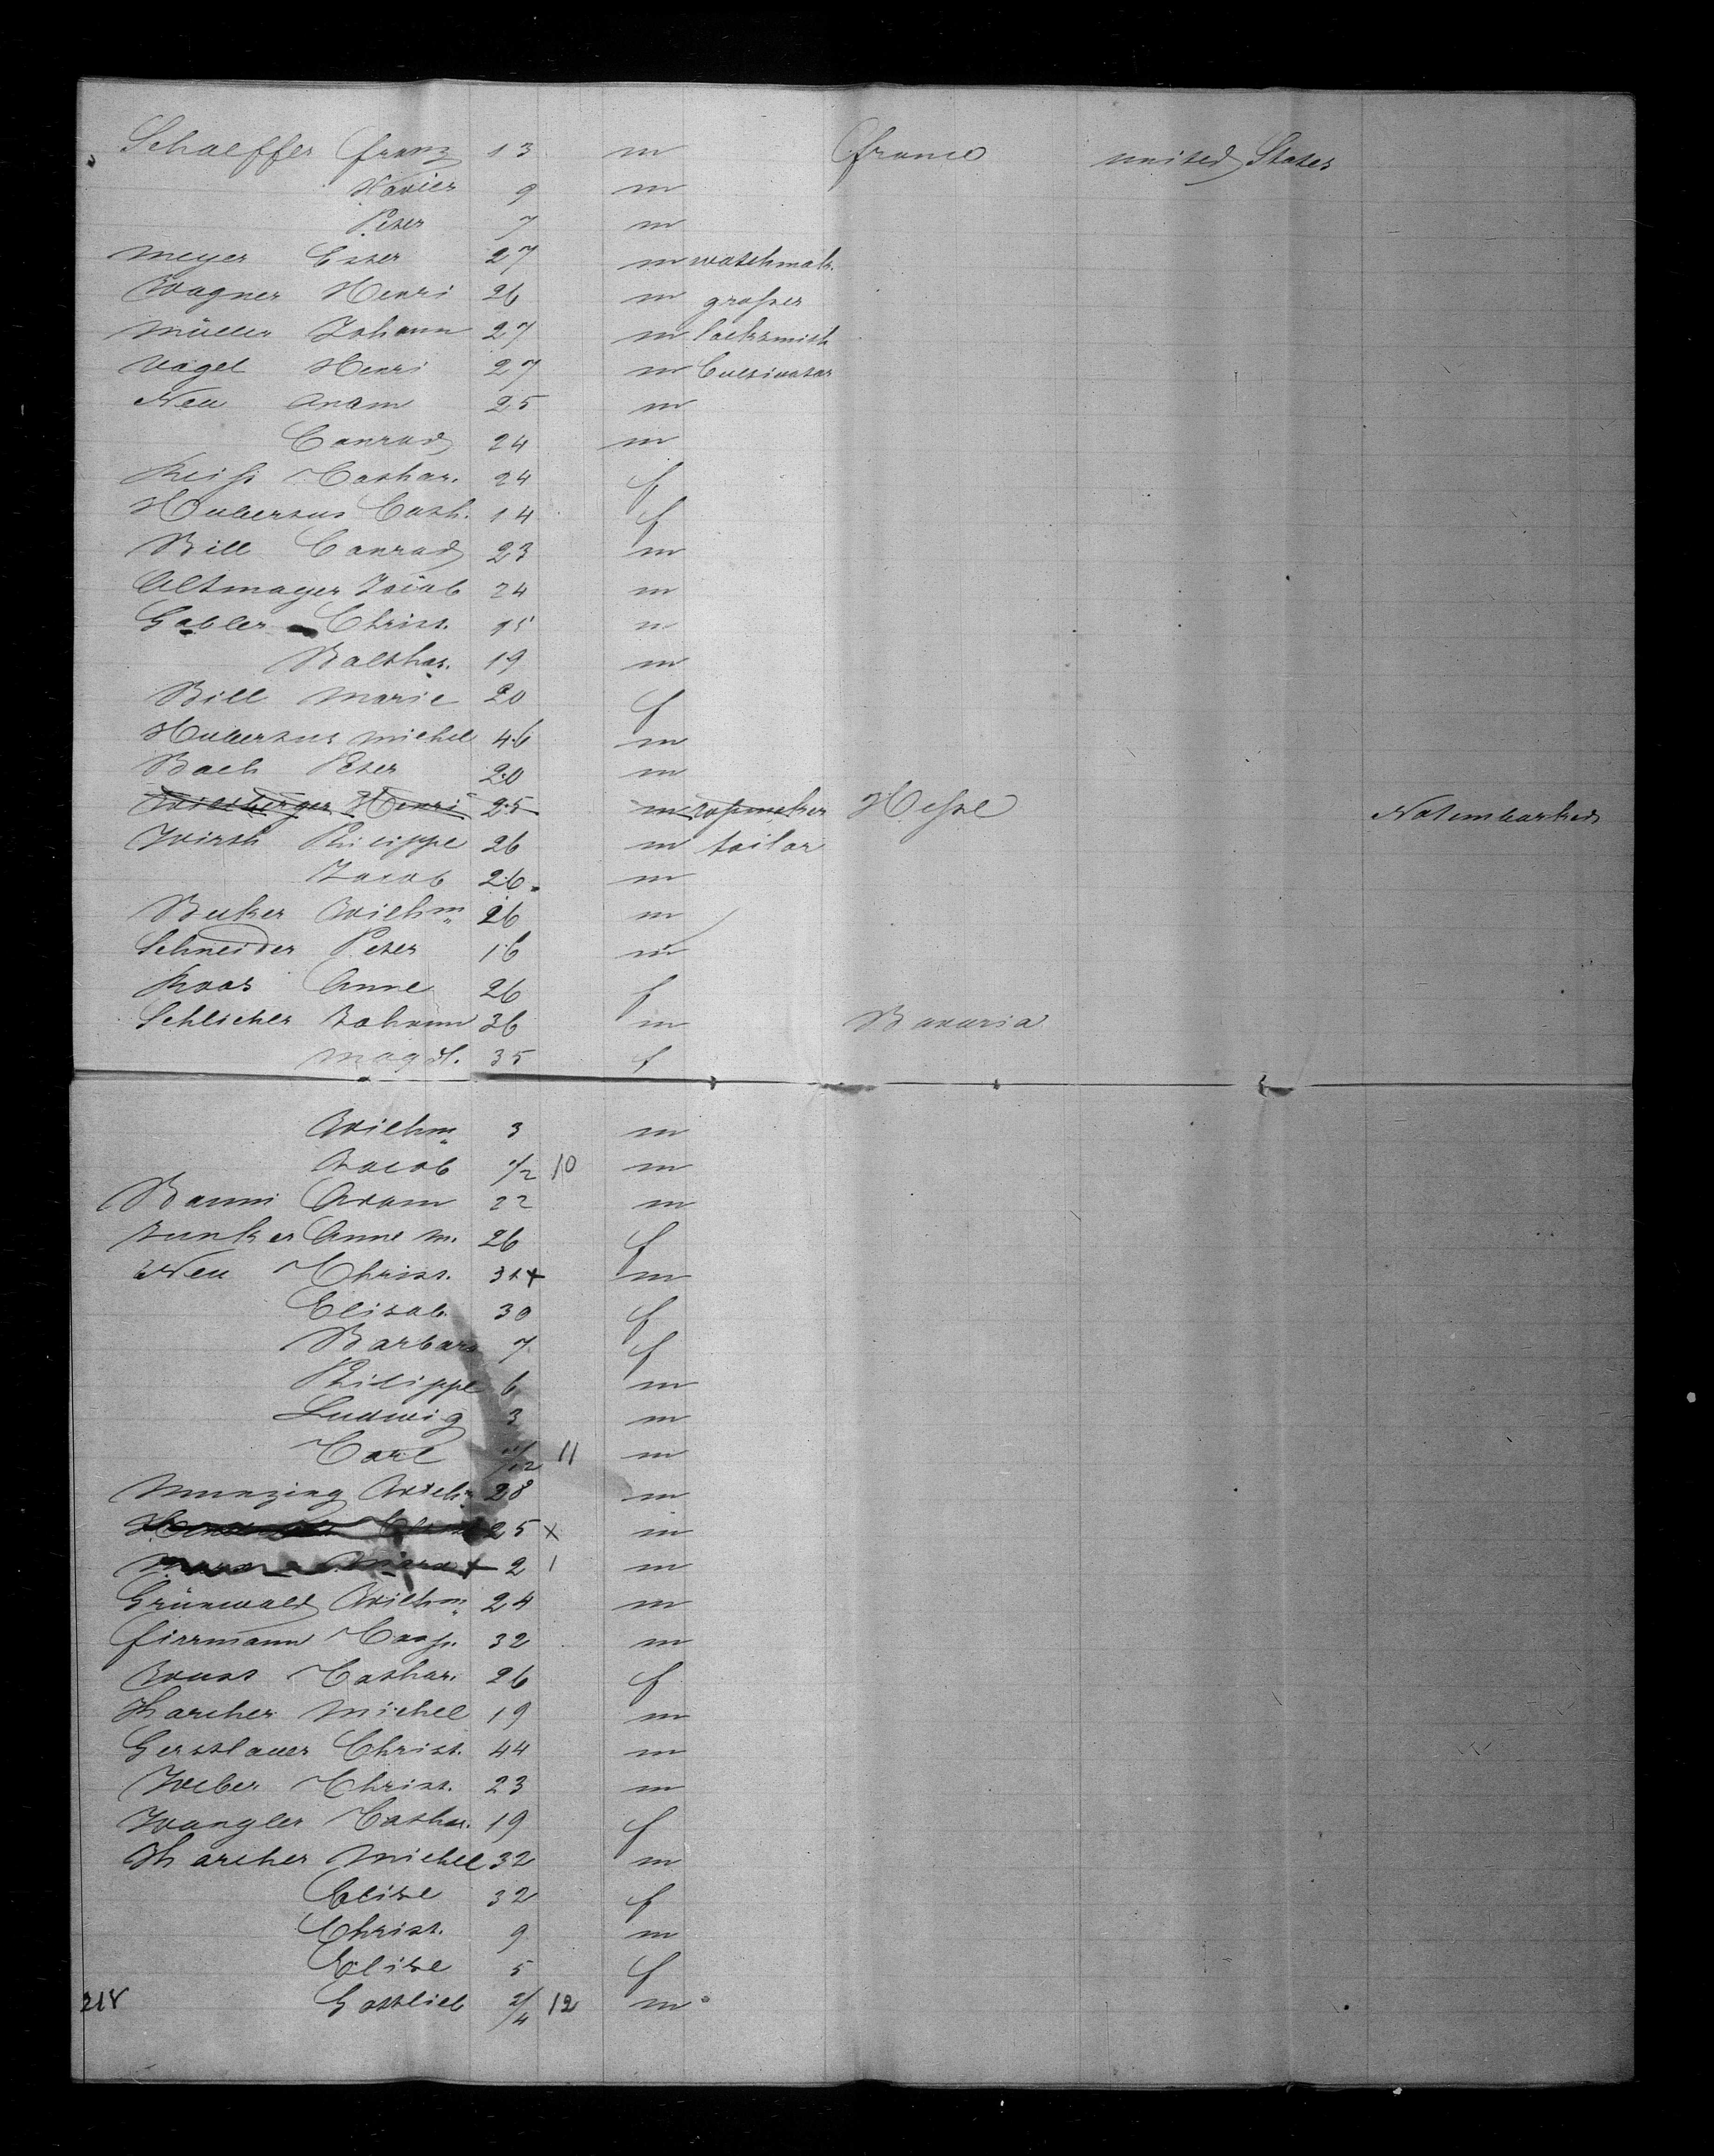 Schaeffer Franz 13 m France united States
Xavier 9 m
Peter 7 m
Meyer 27 m watchmak.
Wagner Henri 26 m
Müller Johann 27 m locksmith
Vogel Henri 27 m Cultivator
Neu Adam 25 m
Conrad 24 m
Reiss Cathar. 24 f
Hubertus Cath. 14 f
Bill Conrad 23 m
Altmayer Jacob 24 m
Gabler Christ. m
Balthas. 19 m
Bill Marie 20 f
Hubertus Michel 46 m
Bach Peter 20 m
Henri 25 m Hesse Not embarked
Wirth Philippe 26 m tailor
Jacob 26 m
Buker Wilhm 26 m
Schneider Peter 16 m
Koos Anne 26 f
Schlicher Johann 36 m Bavaria
Magd. 35 f
Wilhm 3 m
Jacob 1/2 10 m
Adam 22 m
Junker Anne M. 26 f
Neu Christ. m
Elisab. 30 f
Barbara 7 f
Philippe 6 m
Ludwig 3 m
Carl 11 m
Munzing Wilh. 28 m
25 x m
2 1 m
Grünwald Wilhm 24 m
Firrmann Casp. 32 m
Wust Cathar. 26 f
Karcher Michel 19 m
Gerstlauer Christ. 44 m
Weber Christ. 23 m
Wangler Cathar. 19 f
Karcher Michel 32 m
Elise 32 f
Christ. 9 m
Elise 5 f
218 Gottlieb 2/4 12 m